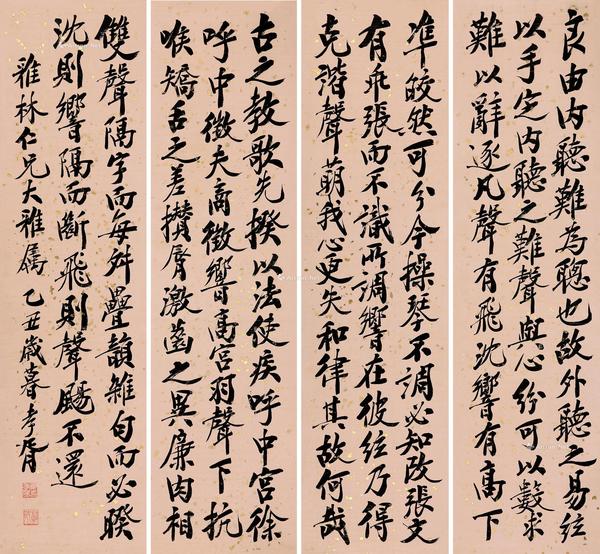 良由內聽難為聰也故外聽之易絃
以手定內聽之難聲與心紛可以數求
難以辭逐凡聲有飛沈響有高下
準皎然可分今操琴不調必知改張文
有乖張而不識所調響在彼絃乃得
克諧聲萌我心更失和律其故何哉
古之教歌先揆以法使疾呼中宮徐
呼中徵夫商徵響高宮羽聲下抗
喉矯舌之差攢脣激齒之異廉肉相
雙聲隔字而每舛疊韻雜句而必睽
沈則響隔而斷飛則聲颺不還
雅林仁兄大雅屬 乙丑歲暮孝胥